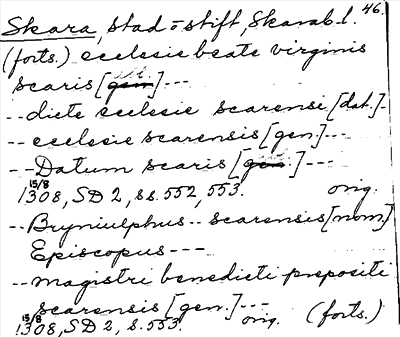 46.
Skara, stad o stift, Skarab. l.
(forts.) ecclesie beate virginis
scaris [gen.] ---
-- dicte ecclesie scarensi [dat.] -
-- ecclesie scarensis [gen.] ---
-- Datum scaris [gen.] ---
15/8 1308, SD 2, ss. 552, 553. orig.
-- Bryniulphus -- scarensis [nom.]
Episcopus ---
-- magistri benedicti prepositi
scarensis [gen.] ---
15/8 1308, SD 2, s. 553. orig. (forts.)